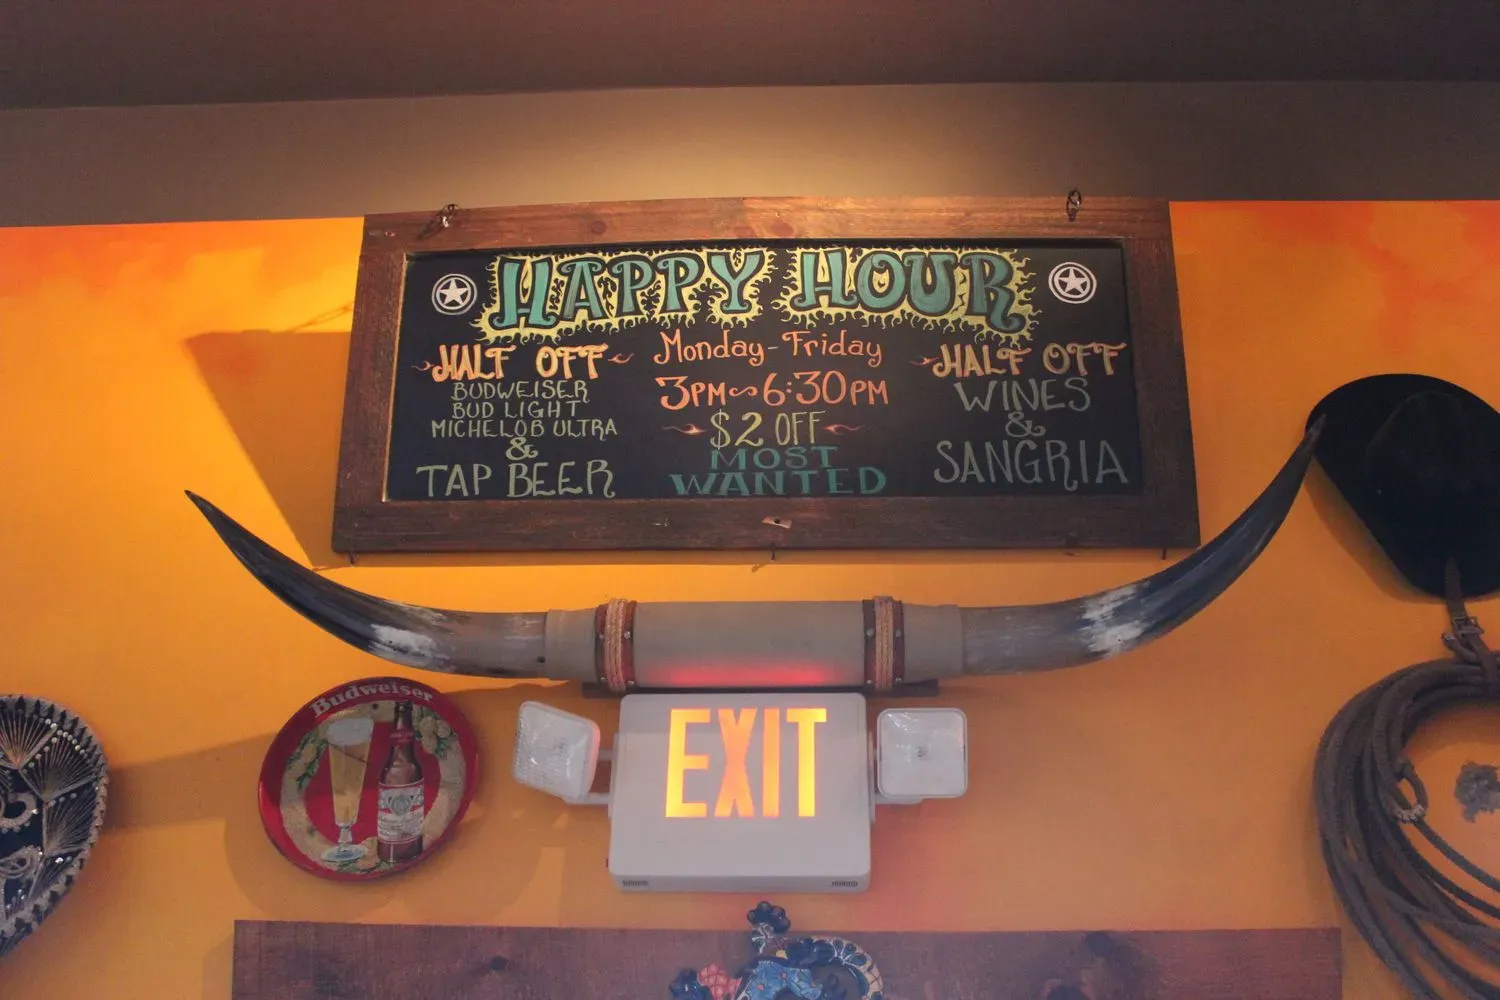 HAPPY HOUR
HALF OFF
BUDWEISER
BUD LIGHT
MICHELOB ULTRA
&
TAP BEER
Monday-Friday
3PM~6:30PM
$2 OFF
MOST
WANTED
HALF OFF
WINES
&
SANGRIA
Budweiser
EXIT